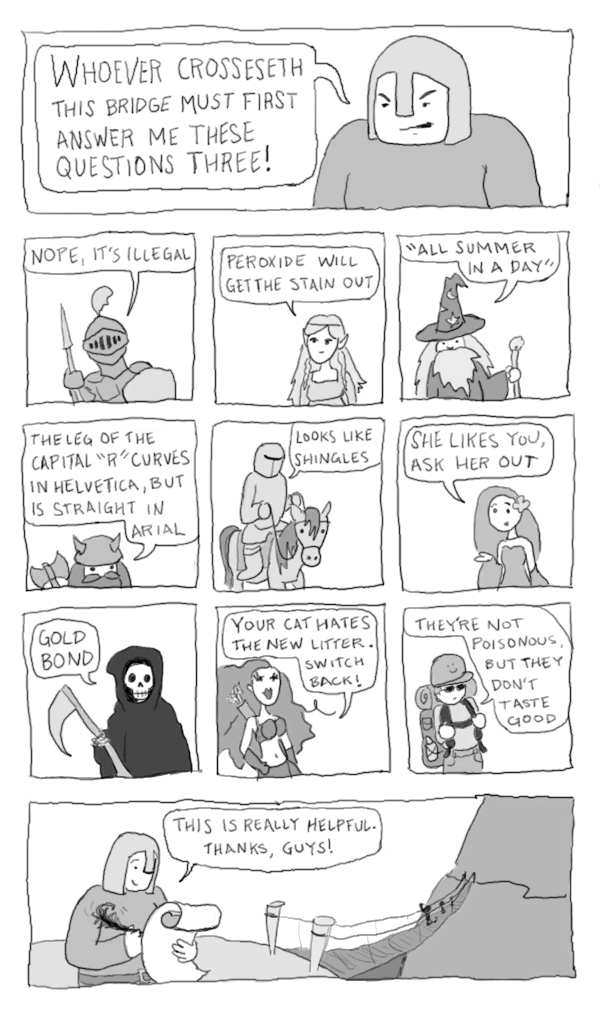 WHOEVER CROSSESETH
THIS BRIDGE MUST FIRST
ANSWER ME THESE
QUESTIONS THREE!
NOPE, IT'S ILLEGAL
PEROXIDE WILL
GET THE STAIN OUT
"ALL SUMMER
IN A DAY"
THE LEG OF THE
CAPITAL "R" CURVES
IN HELVETICA, BUT
IS STRAIGHT IN
ARIAL
LOOKS LIKE
SHINGLES
SHE LIKES YOU,
ASK HER OUT
GOLD
BOND
YOUR CAT HATES
THE NEW LITTER.
SWITCH
BACK!
THEY'RE NOT
POISONOUS,
BUT THEY
DON'T
TASTE
GOOD
THIS IS REALLY HELPFUL.
THANKS, GUYS!